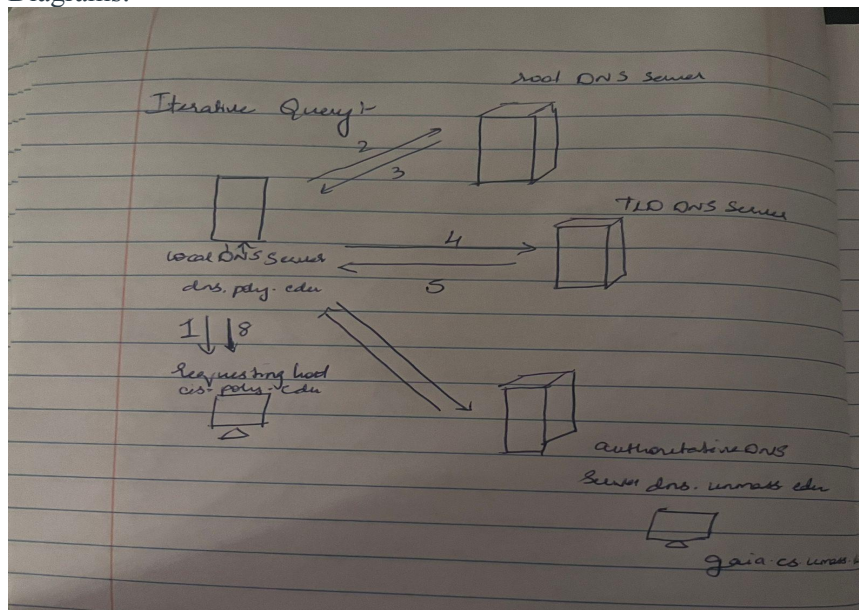 Diagrams:
root DNS Server
Iterative Query:-
2
3
TLD DNS Server
4
Local DNS Server
5
dns.poly.edu
1 8
Requesting host
cis.poly.edu
authoritative DNS
Server dns.umass edu
gaia.cs.umass.